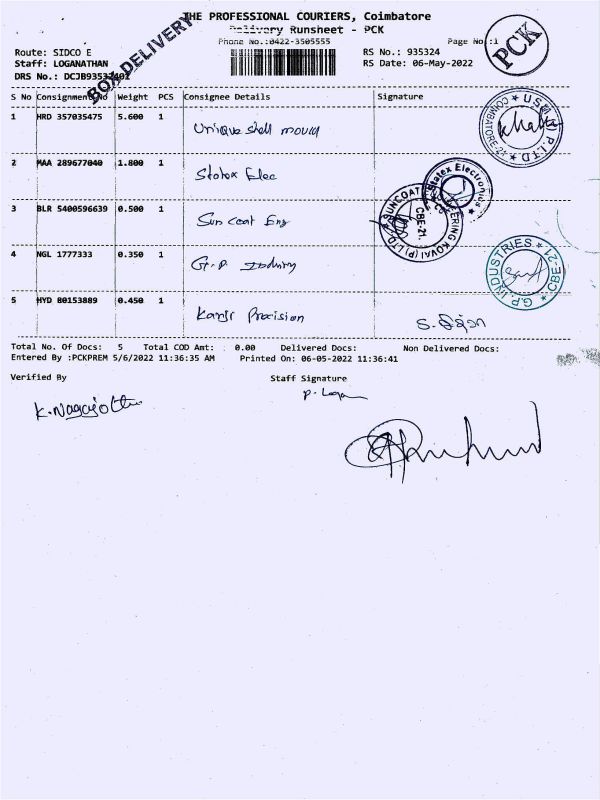 THE PROFESSIONAL COURIERS, Coimbatore
Delivery Runsheet - PCK
Phone No.:0422-3505555
Page No.:1
PCK
BOX DELIVERY
Route: SIDCO E
RS No.: 935324
Staff: LOGANATHAN
RS Date: 06-May-2022
DRS No.: DCJB93532402
S No Consignment No Weight PCS Consignee Details Signature
1 HRD 357035475 5.600 1 Unique shell mould
COIMBATORE-21 ★ USM (P) LTD
2 MAA 289677040 1.800 1 Statex Elec
Statex Electronics
3 BLR 5400596639 0.500 1 Sun coat Eng
SUNCOAT ENGINEERING KOVAI (P) LTD
CBE-21.
4 NGL 1777333 0.350 1 G.P Industry
G.P. INDUSTRIES ★ CBE-21 ★
5 HYD 80153889 0.450 1 Kanji Precision
Total No. Of Docs: 5 Total COD Amt: 0.00 Delivered Docs: Non Delivered Docs:
Entered By :PCKPREM 5/6/2022 11:36:35 AM Printed On: 06-05-2022 11:36:41
Verified By Staff Signature
P. Logan